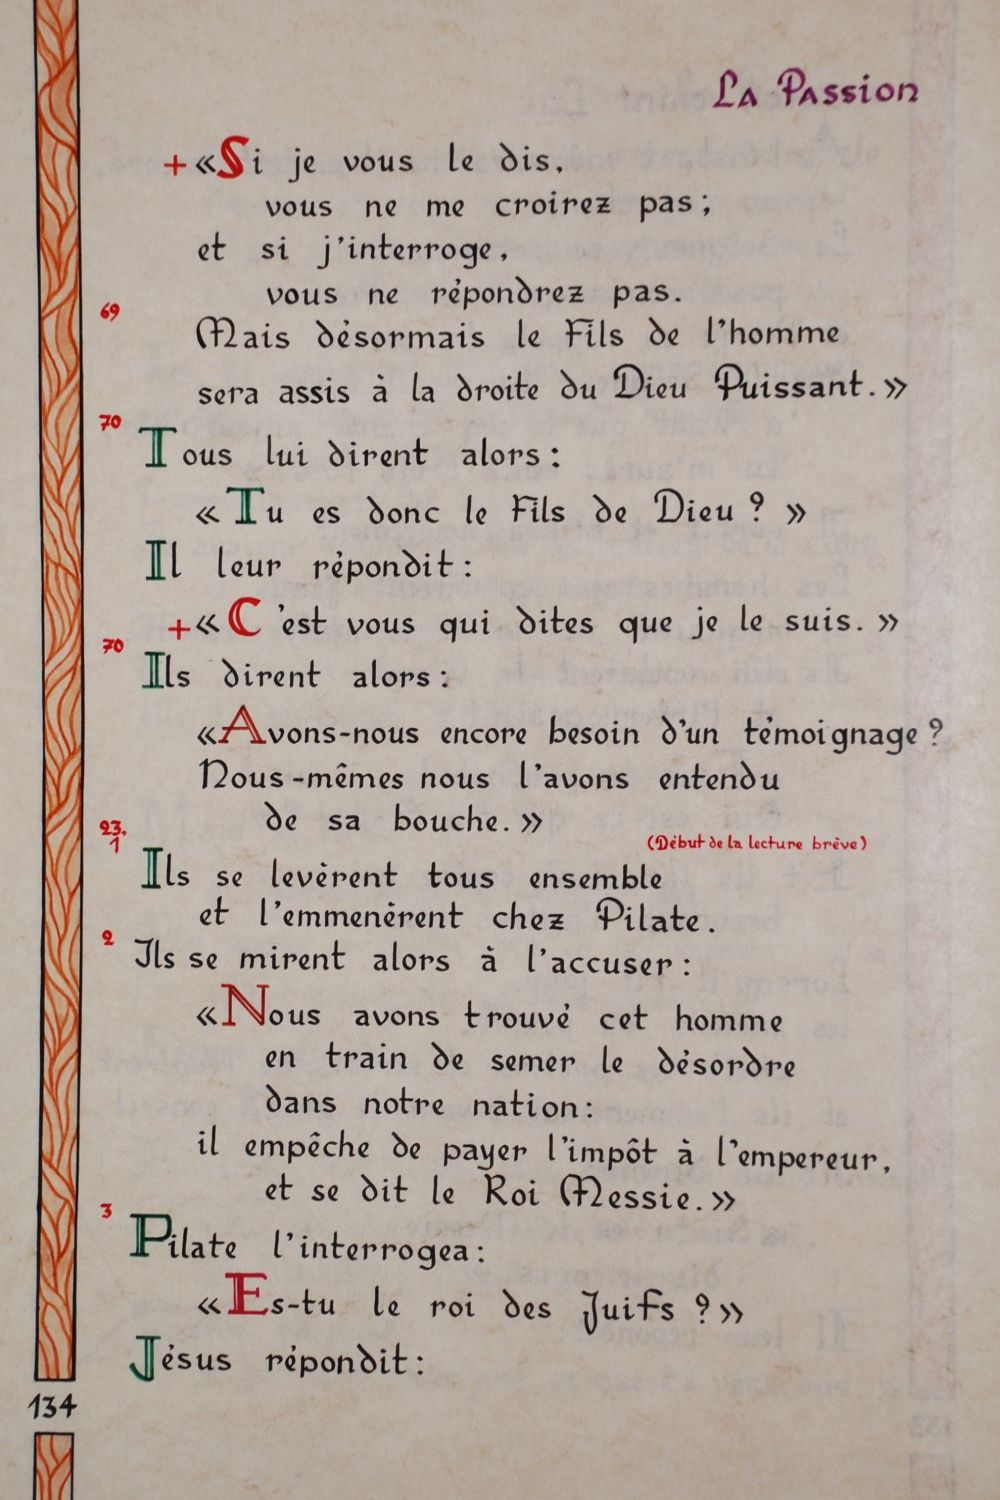 La Passion
+«Si je vous le dis,
vous ne me croirez pas;
et si j'interroge,
vous ne répondrez pas.
69
Mais désormais le Fils de l'homme
sera assis à la droite du Dieu Puissant.»
70
Tous lui dirent alors:
«Tu es donc le Fils de Dieu ? »
Il leur répondit:
+«C'est vous qui dites que je le suis. »
70
Ils dirent alors:
«Avons-nous encore besoin d'un témoignage ?
Nous-mêmes nous l'avons entendu
de sa bouche.»
23,
1
(Début de la lecture brève)
Ils se levèrent tous ensemble
et l'emmenèrent chez Pilate.
2
Ils se mirent alors à l'accuser:
«Nous avons trouvé cet homme
en train de semer le désordre
dans notre nation:
il empêche de payer l'impôt à l'empereur,
et se dit le Roi Messie.»
3
Pilate l'interrogea:
«Es-tu le roi des Juifs ?»
Jésus répondit:
134